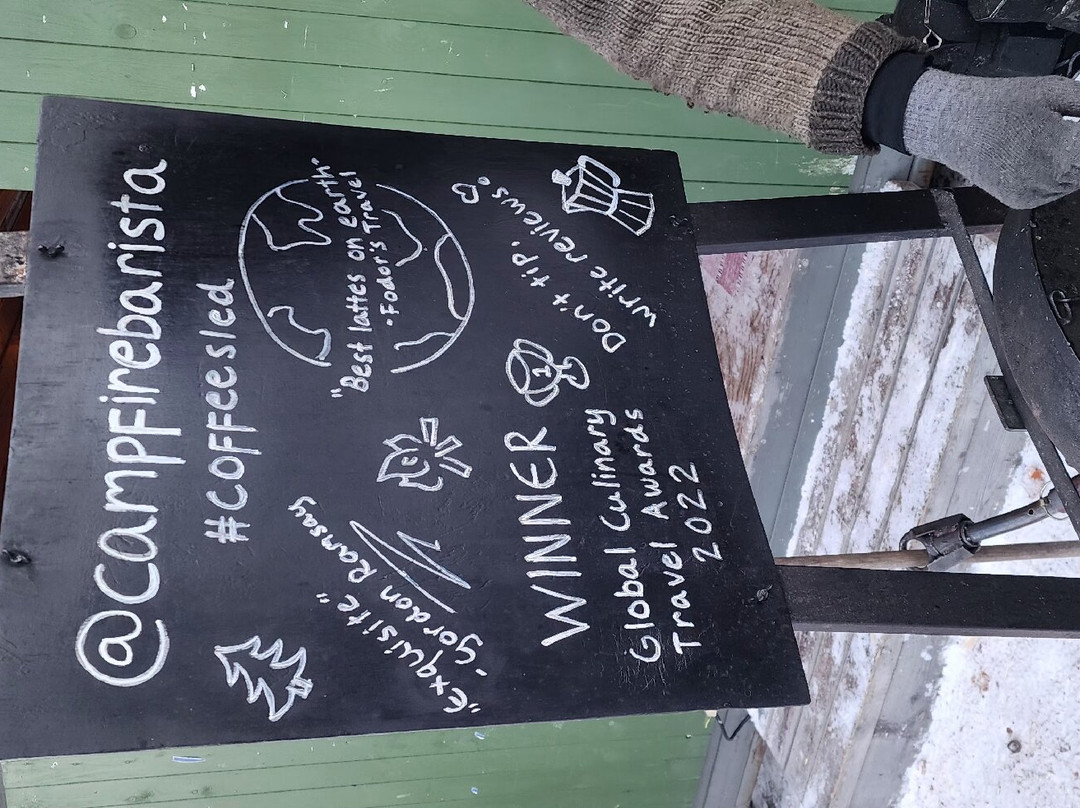 @campfirebarista
#coffeesled
"Best lattes on earth"
-Fodor's Travel
"Exquisite"
-Gordon Ramsay
WINNER
1
Global Culinary
Travel Awards
2022
Don't tip.
write reviews.